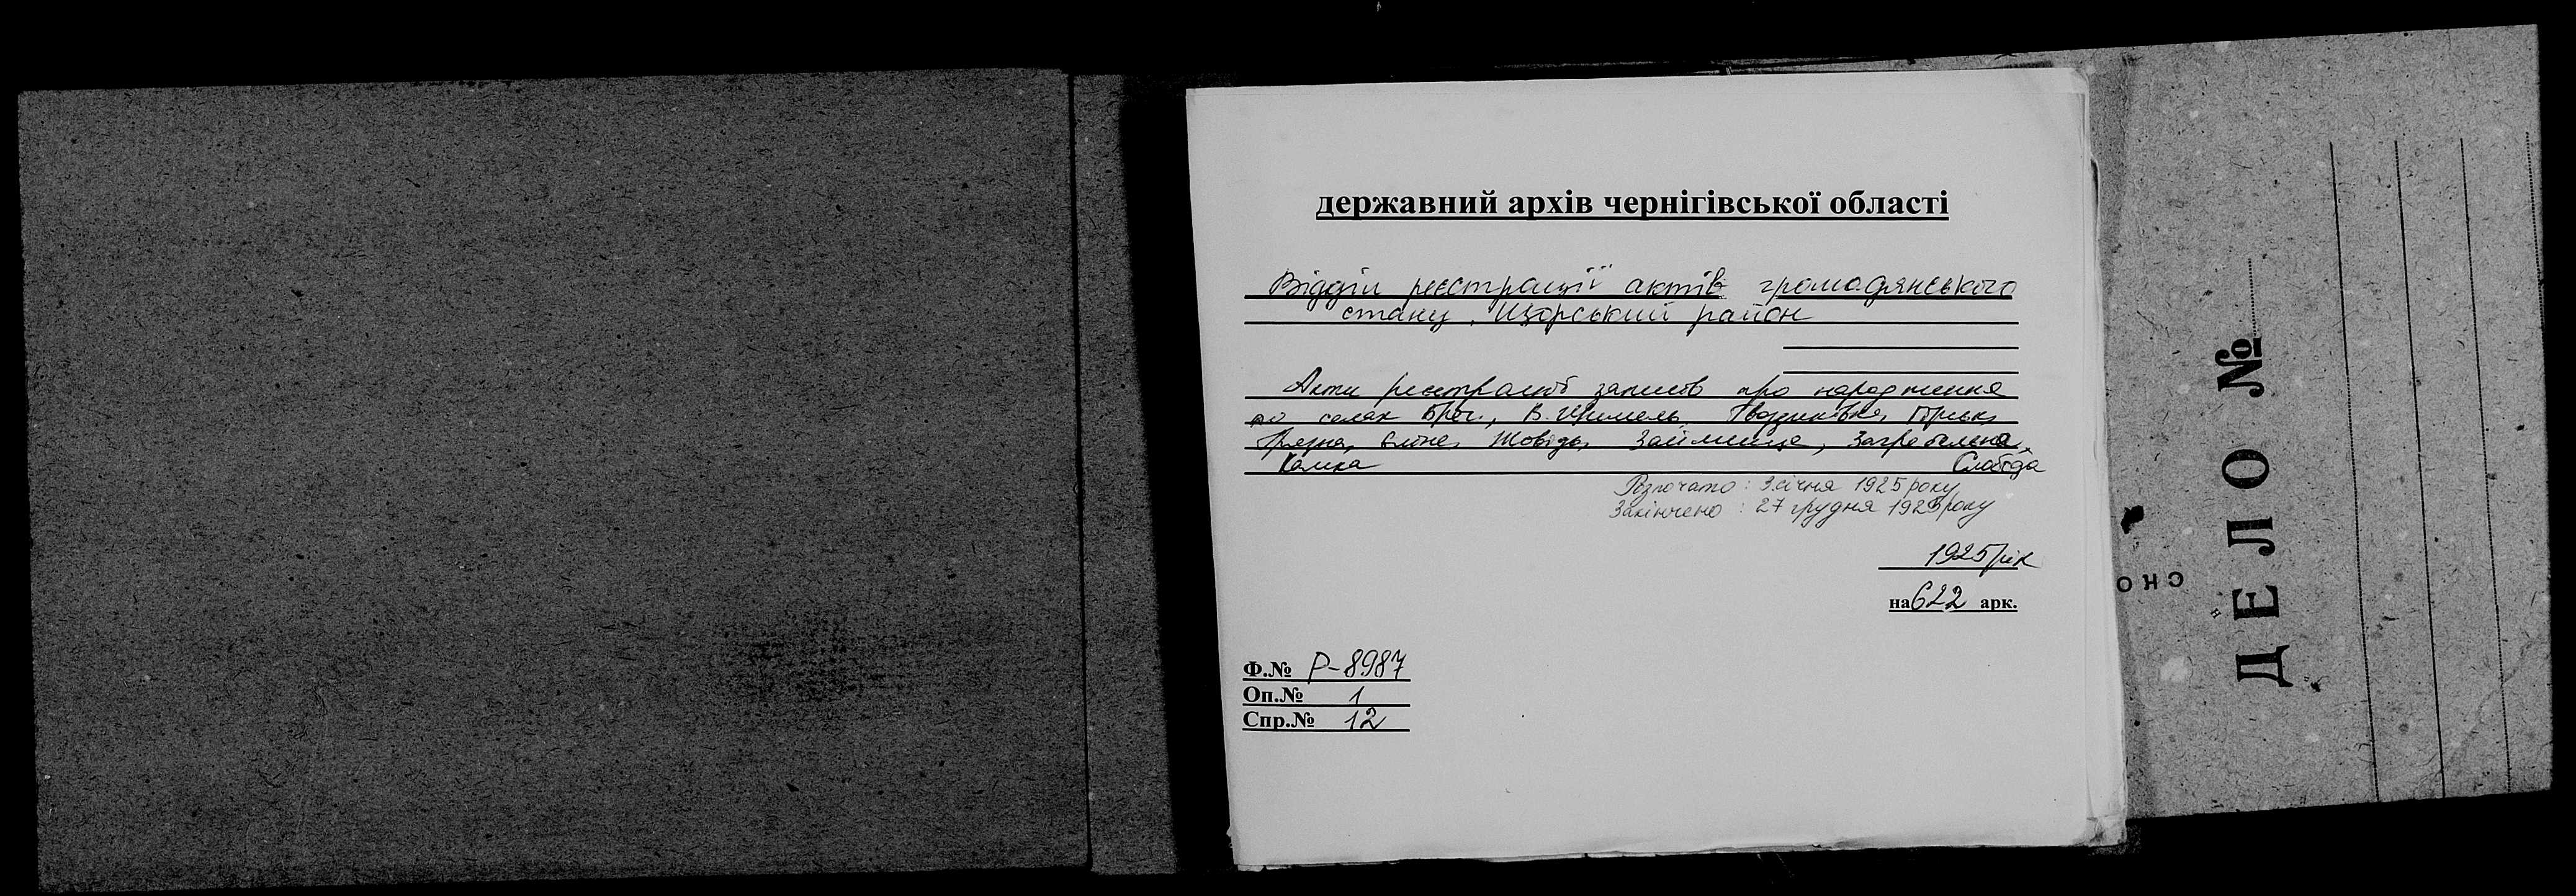 державний архів чернігівської області
Відділ реєстрації актів громадянського
стану. Щорський район
Акти реєстрації записів про народження
по селах Бреч, В. Щимель, Гвоздиківка, Гірськ,
Єліне, Жовідь, Займище, Загребельна
Камка Слобода
Розпочато: 3 січня 1925 року
Закінчено: 27 грудня 1925 року
1925 рік
на 622 арк.
Ф.№ Р-8987
Оп.№ 1
Спр.№ 12
ДЕЛО №